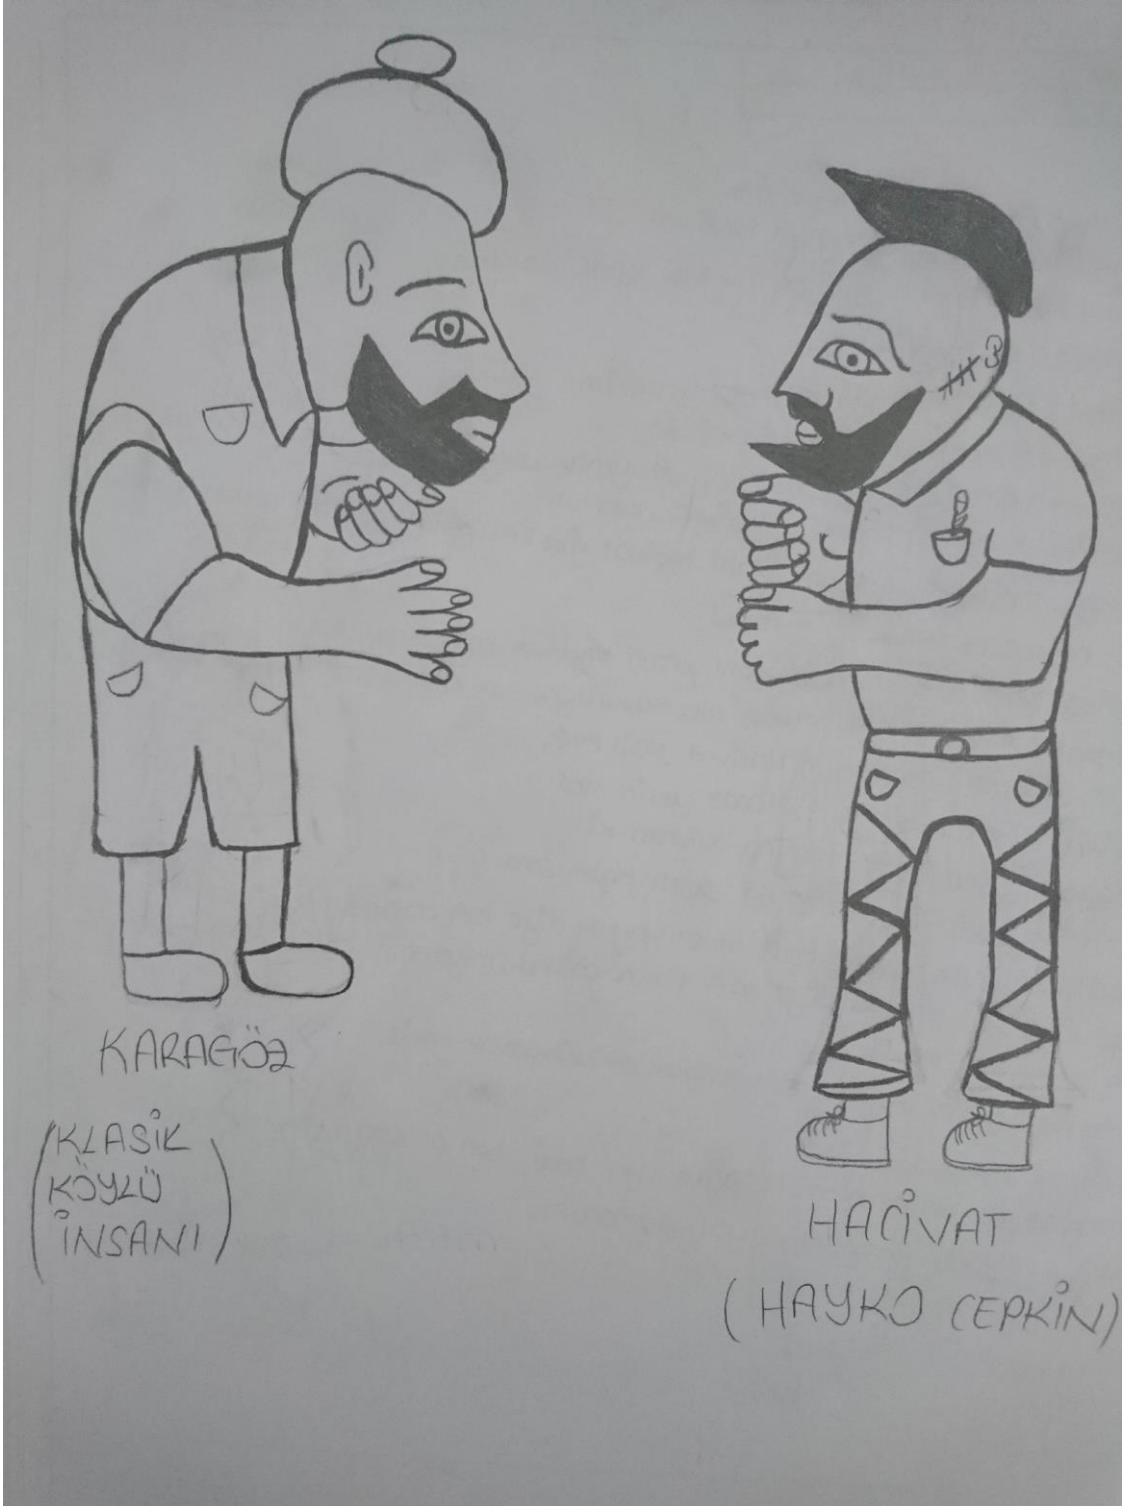 KARAGÖZ
(KLASİK
KÖYLÜ
İNSANI)
HACİVAT
(HAYKO CEPKİN)